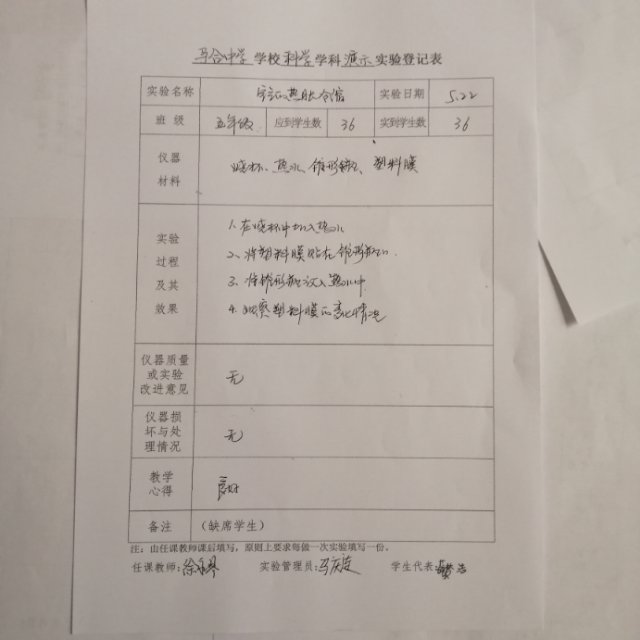 马合中学 学校 科学 学科 演示 实验登记表
实验名称 空气的热胀冷缩 实验日期 5.22
班 级 五年级 应到学生数 36 实到学生数 36
仪器材料 烧杯、热水、锥形瓶、塑料膜
实验过程及其效果
1、在烧杯中加入热水
2、将塑料膜贴在锥形瓶口.
3、将锥形瓶放入热水中
4、观察塑料膜的变化情况
仪器质量或实验改进意见 无
仪器损坏与处理情况 无
教学心得 良好
备注 （缺席学生）
注：由任课教师课后填写，原则上要求每做一次实验填写一份。
任课教师： 实验管理员： 学生代表：